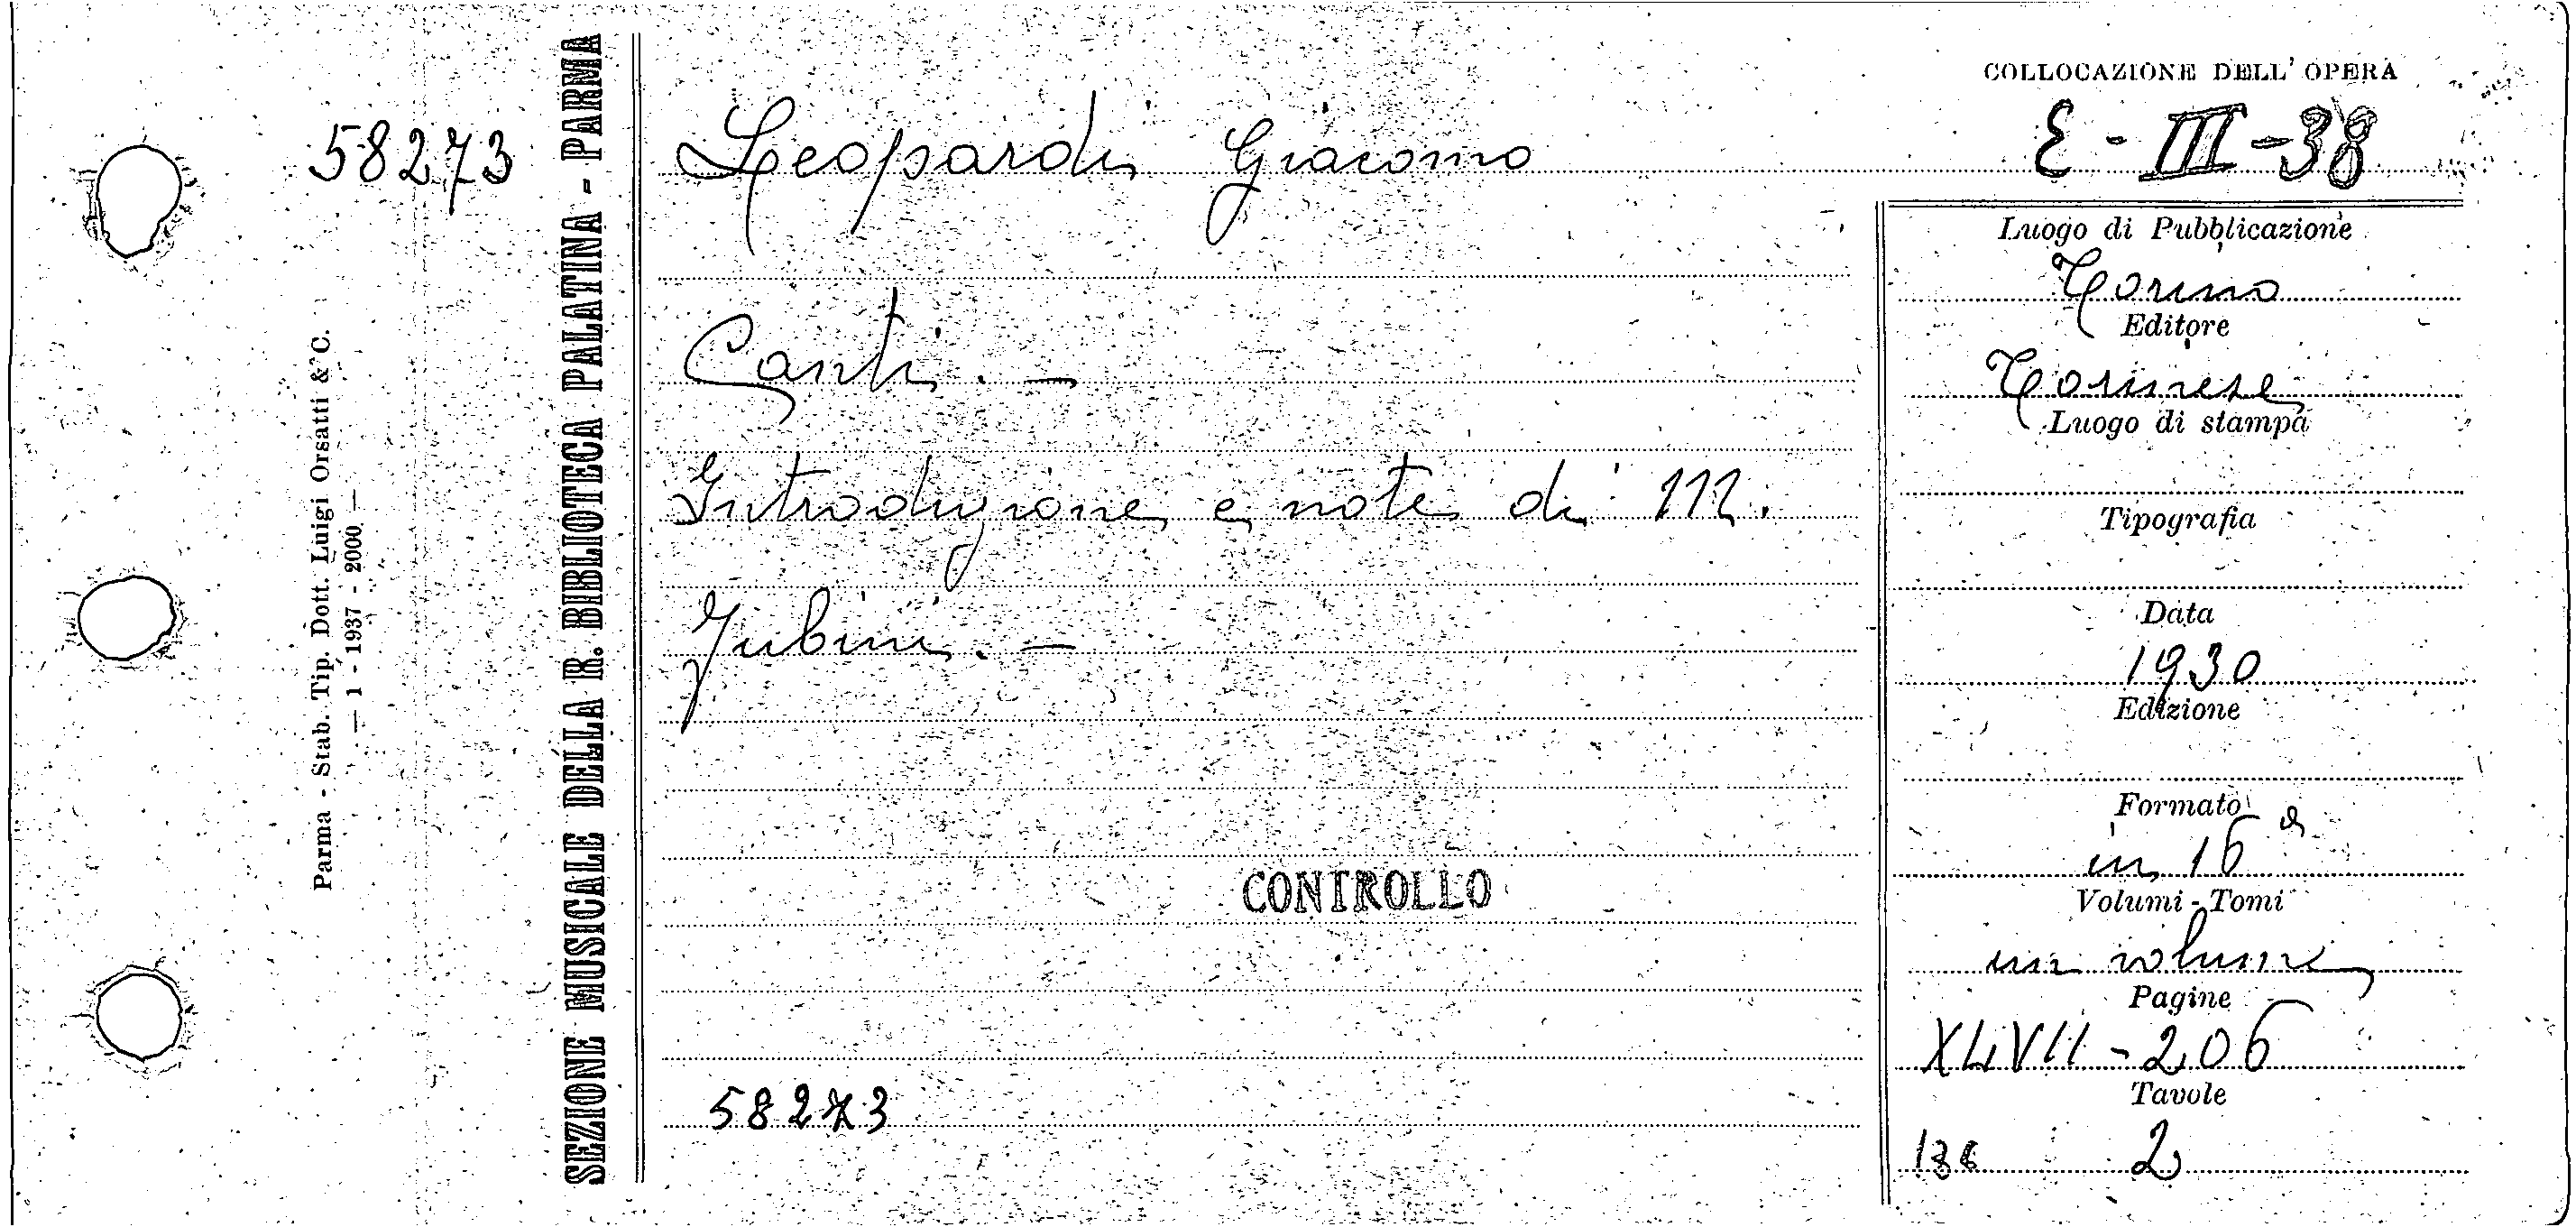 58273
Parma - Stab. Tip. Dott. Luigi Orsatti & C.
— 1 - 1937 - 2000 —
SEZIONE MUSICALE DELLA R. BIBLIOTECA PALATINA - PARMA
COLLOCAZIONE DELL' OPERA
Leopardi Giacomo
E - III - 38
Canti. —
Introduzione e note di M.
Jubini. —
CONTROLLO
58273
Luogo di Pubblicazione
Torino
Editore
Torinese
Luogo di stampa
Tipografia
Data
1930
Edizione
Formato
in 16°
Volumi - Tomi
un volume
Pagine
XLVII - 206
Tavole
2